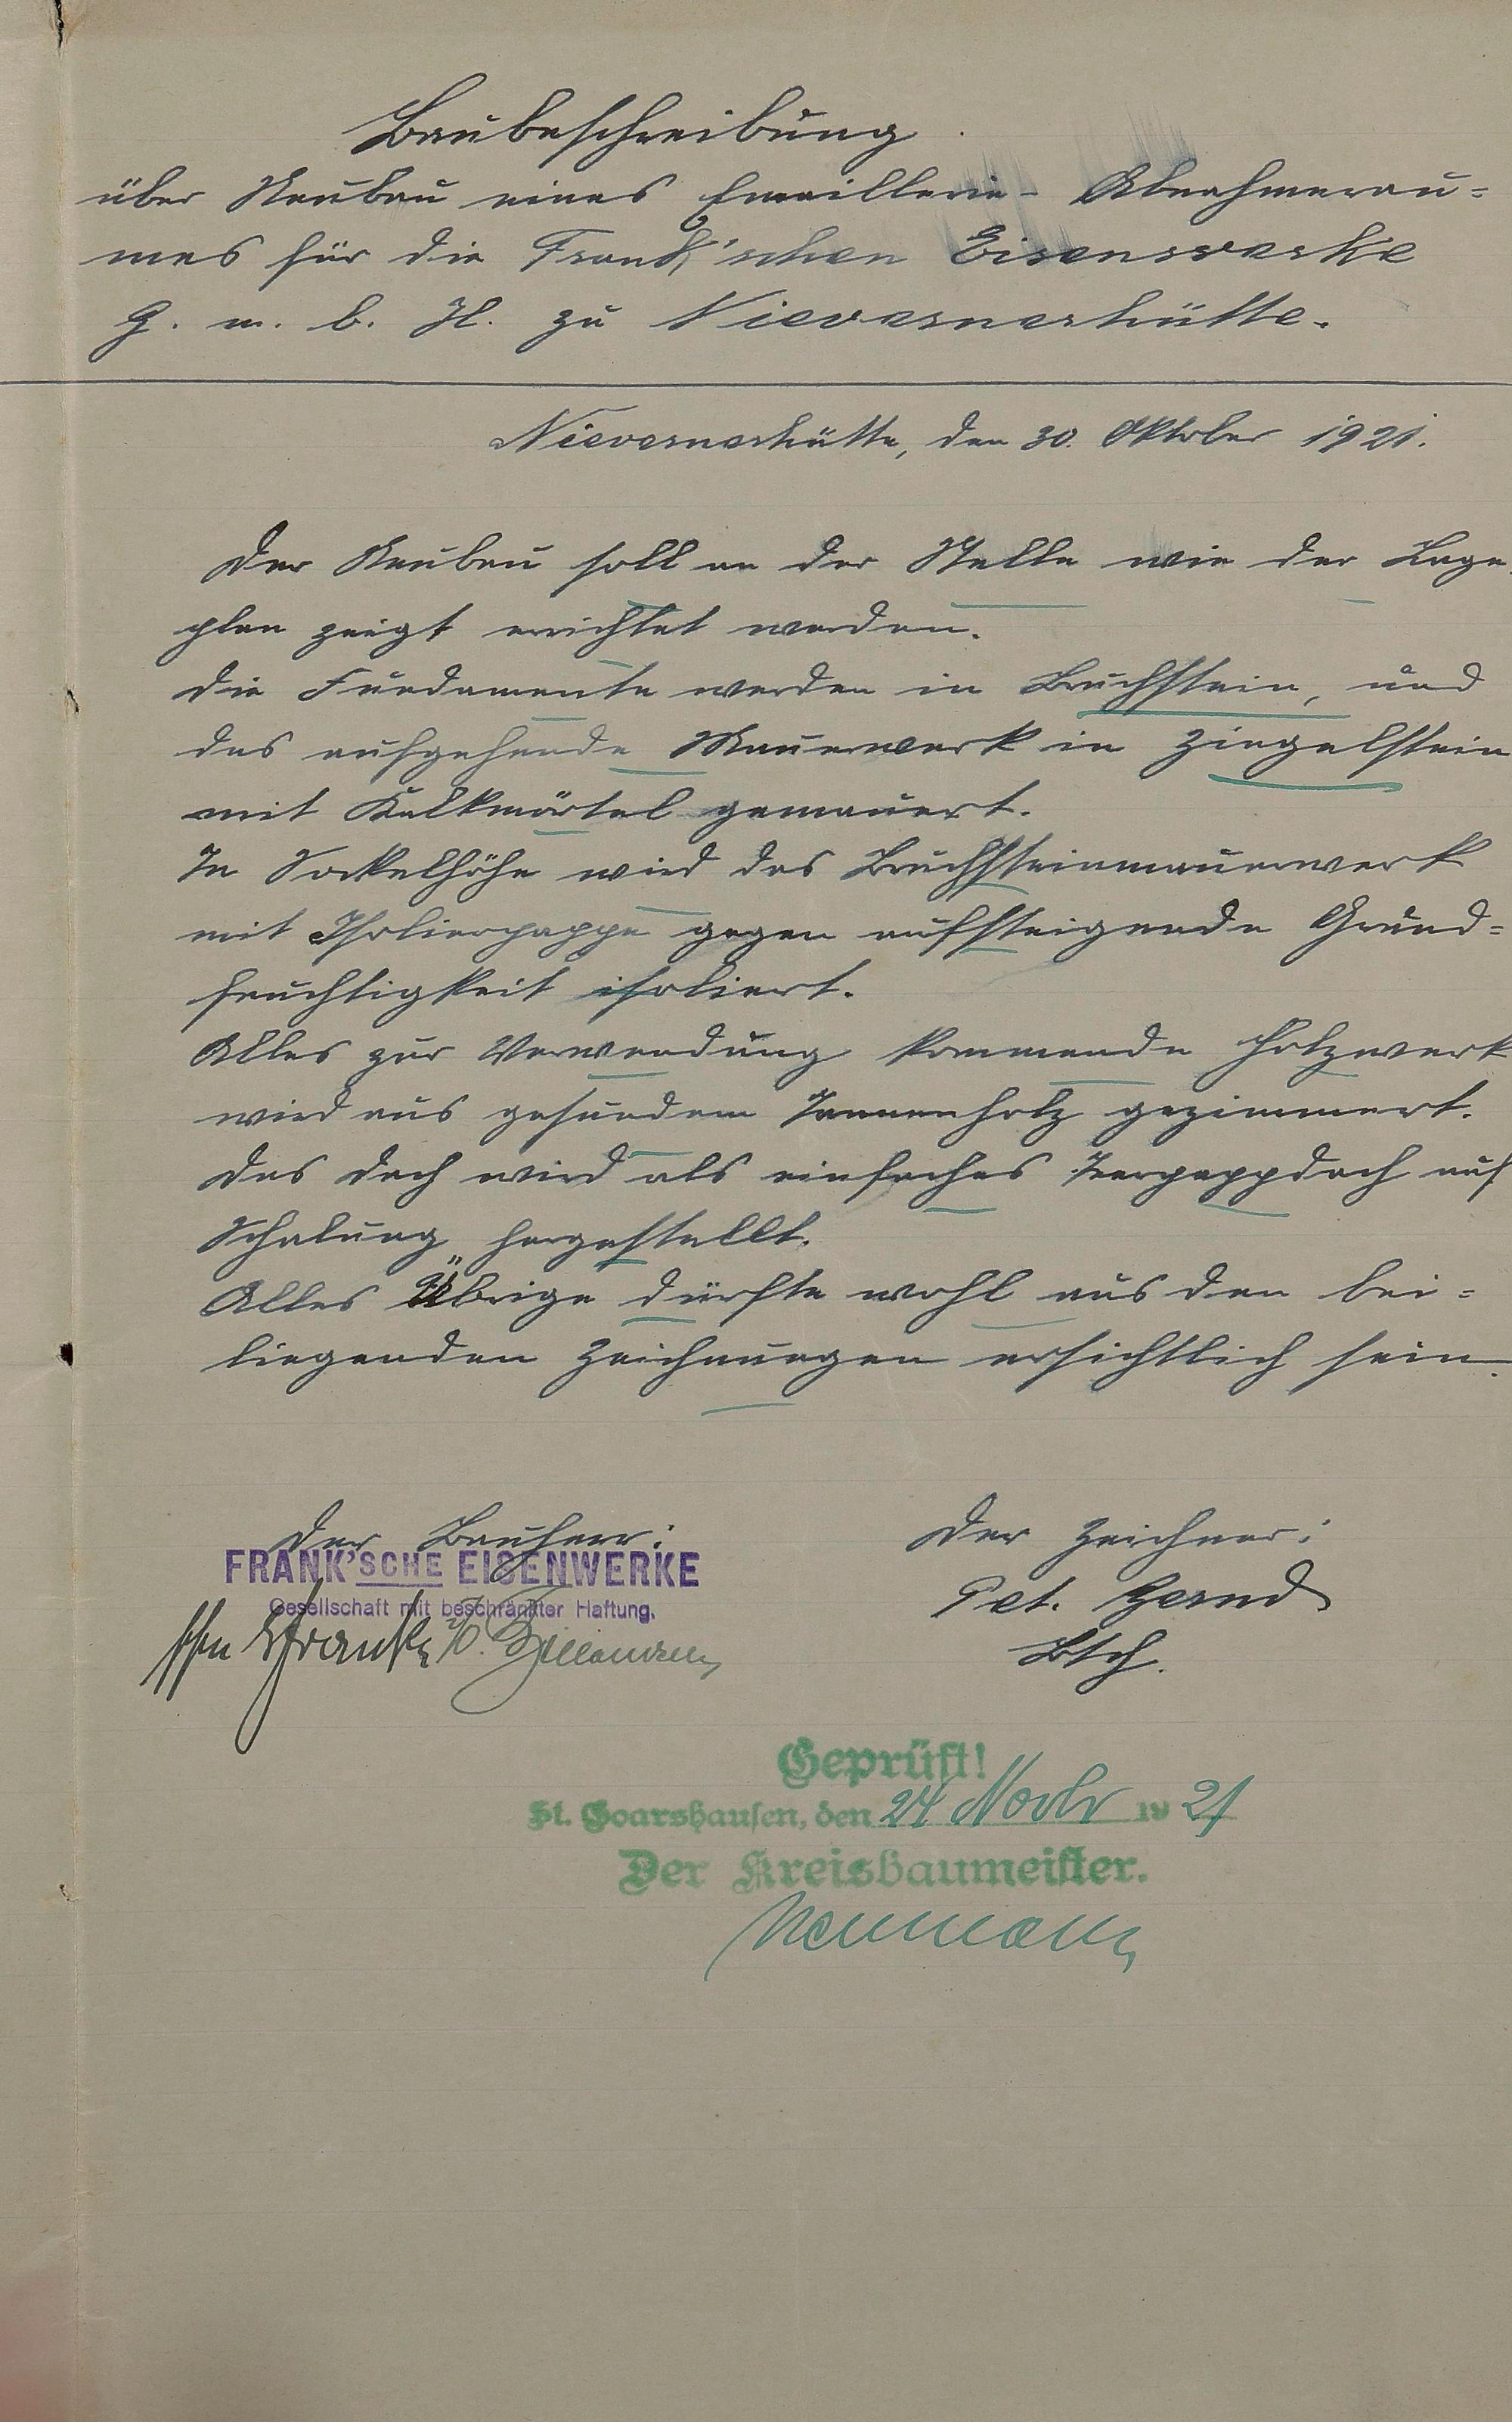 Baubeschreibung
über Neubau eines Emaillerie- Abnahmerau=
mes für die Frank'schen Eisenwerke
G. m. b. H. zu Nievernerhütte.
Nievernerhütte, den 30. Oktober 1921.
Der Neubau soll an der Stelle wie der Lage
plan zeigt errichtet werden.
Die Fundamente werden in Bruchstein, und
das aufgehende Mauerwerk in Ziegelstein
mit Kalkmörtel gemauert.
In Sockelhöhe wird das Bruchsteinmauerwerk
mit Isolierpappe gegen aufsteigende Grund=
feuchtigkeit isoliert.
Alles zur Verwendung kommende Holzwerk
wird aus gesundem Tannenholz gezimmert.
Das Dach wird als einfaches Teerpappdach auf
Schalung hergestellt.
Alles Übrige dürfte wohl aus den bei=
liegenden Zeichnungen ersichtlich sein.
Der Bauherr:
FRANK'SCHE EISENWERKE
Gesellschaft mit beschränkter Haftung.
Frank
Der Zeichner:
Pet. Gernd
Geprüft!
St. Goarshausen, den 24 Novbr 1921
Der Kreisbaumeister.
Neumann